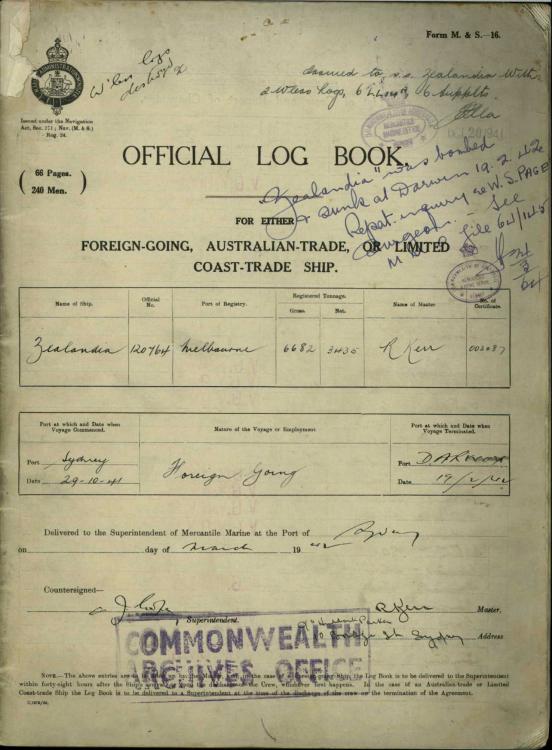 Form M. & S.—16.
W'less logs
destroyed
Issued to s.s. Zealandia with
a W'less Log, 6
Issued under the Navigation
Act, Sec. 171; Nav. (M. & S.)
Reg. 24.
20 1941
OFFICIAL LOG BOOK.
66 Pages.
240 Men.
"Zealandia" was bombed
& sunk at Darwin 19.2.42
Repat. inquiry re W.S. PAGE
Surgeon. — See
M file 64/
FOR EITHER
FOREIGN-GOING, AUSTRALIAN-TRADE, OR LIMITED
COAST-TRADE SHIP.
Name of Ship.
Official
No.
Port of Registry.
Registered Tonnage.
Gross.
Net.
Name of Master
No. of
Certificate.
Zealandia
120764
Melbourne
6682
3435
R Kerr
Port at which and Date when
Voyage Commenced.
Nature of the Voyage or Employment.
Port at which and Date when
Voyage Terminated.
Port Sydney
Date 29-10-41
Foreign Going
Port DARWIN
Date 19/2/42
Delivered to the Superintendent of Mercantile Marine at the Port of Sydney
on day of March 1942
Countersigned—
Superintendent.
R Kerr Master.
Sydney Address
COMMONWEALTH
ARCHIVES OFFICE
NOTE.—The above entries are Ship, the Log Book is to be delivered to the Superintendent
within forty-eight hours after the Crew, whichever first happens. In the case of an Australian-trade or Limited
Coast-trade Ship the Log Book is to be delivered to a Superintendent at the time of the discharge of the crew on the termination of the Agreement.